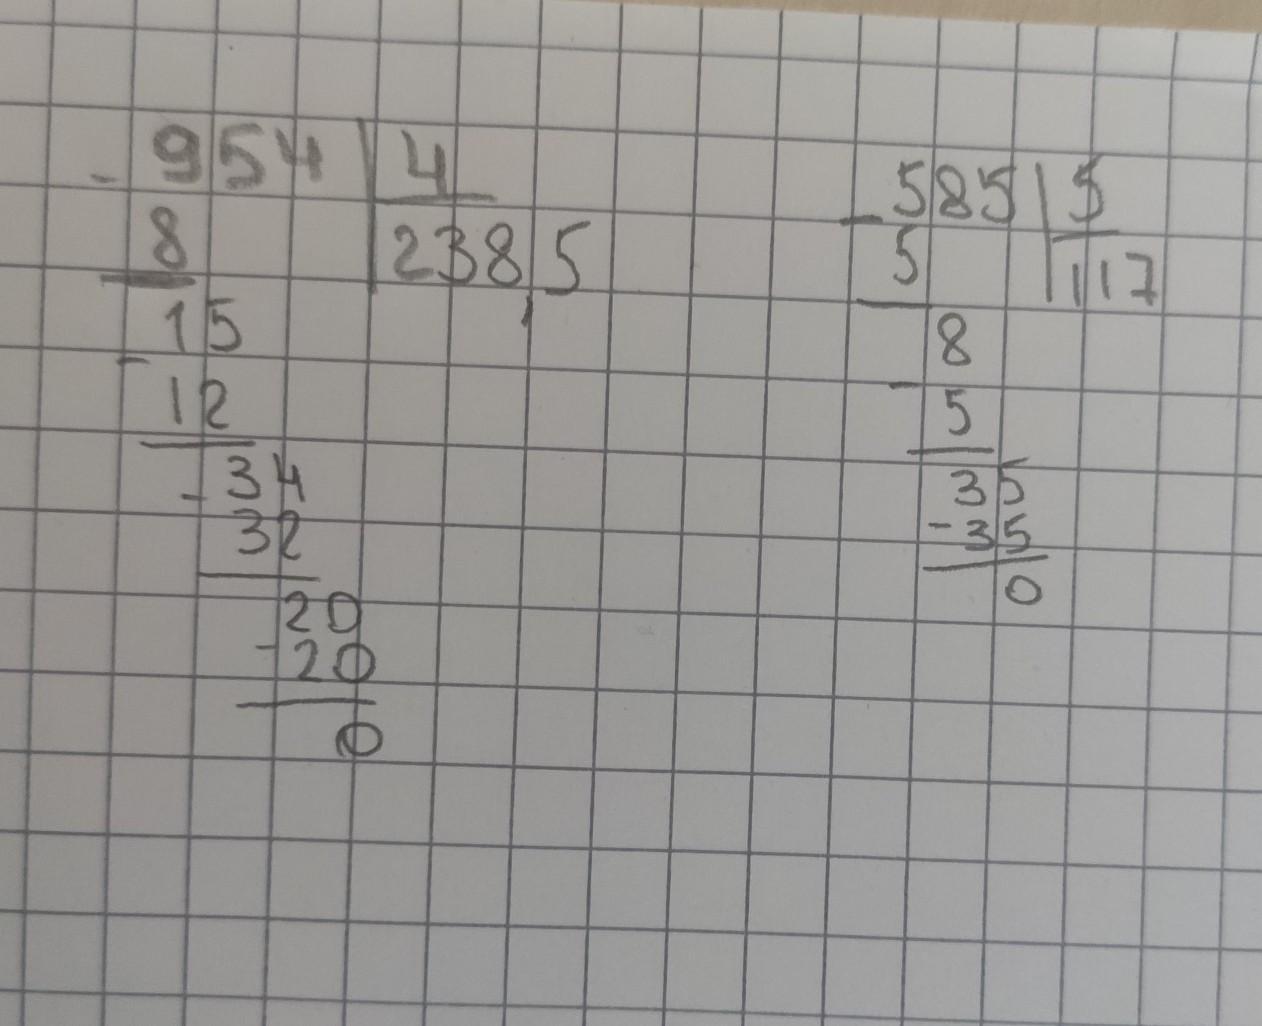 - 954 | 4
8 | 238,5
15
- 12
- 34
32
20
- 20
0
- 585 | 5
5 | 117
8
- 5
35
- 35
0